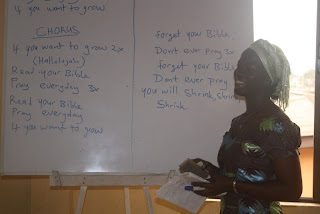 4 you want to grow
CHORUS
4 you want to grow 2x
(Hallelujah)
Read your Bible
Pray everyday 3x
Read your Bible
Pray everyday
4 you want to grow
forget your Bible
Dont ever pray 3x
forget your Bible
Dont ever pray
you will Shrink, Shrink
Shrink